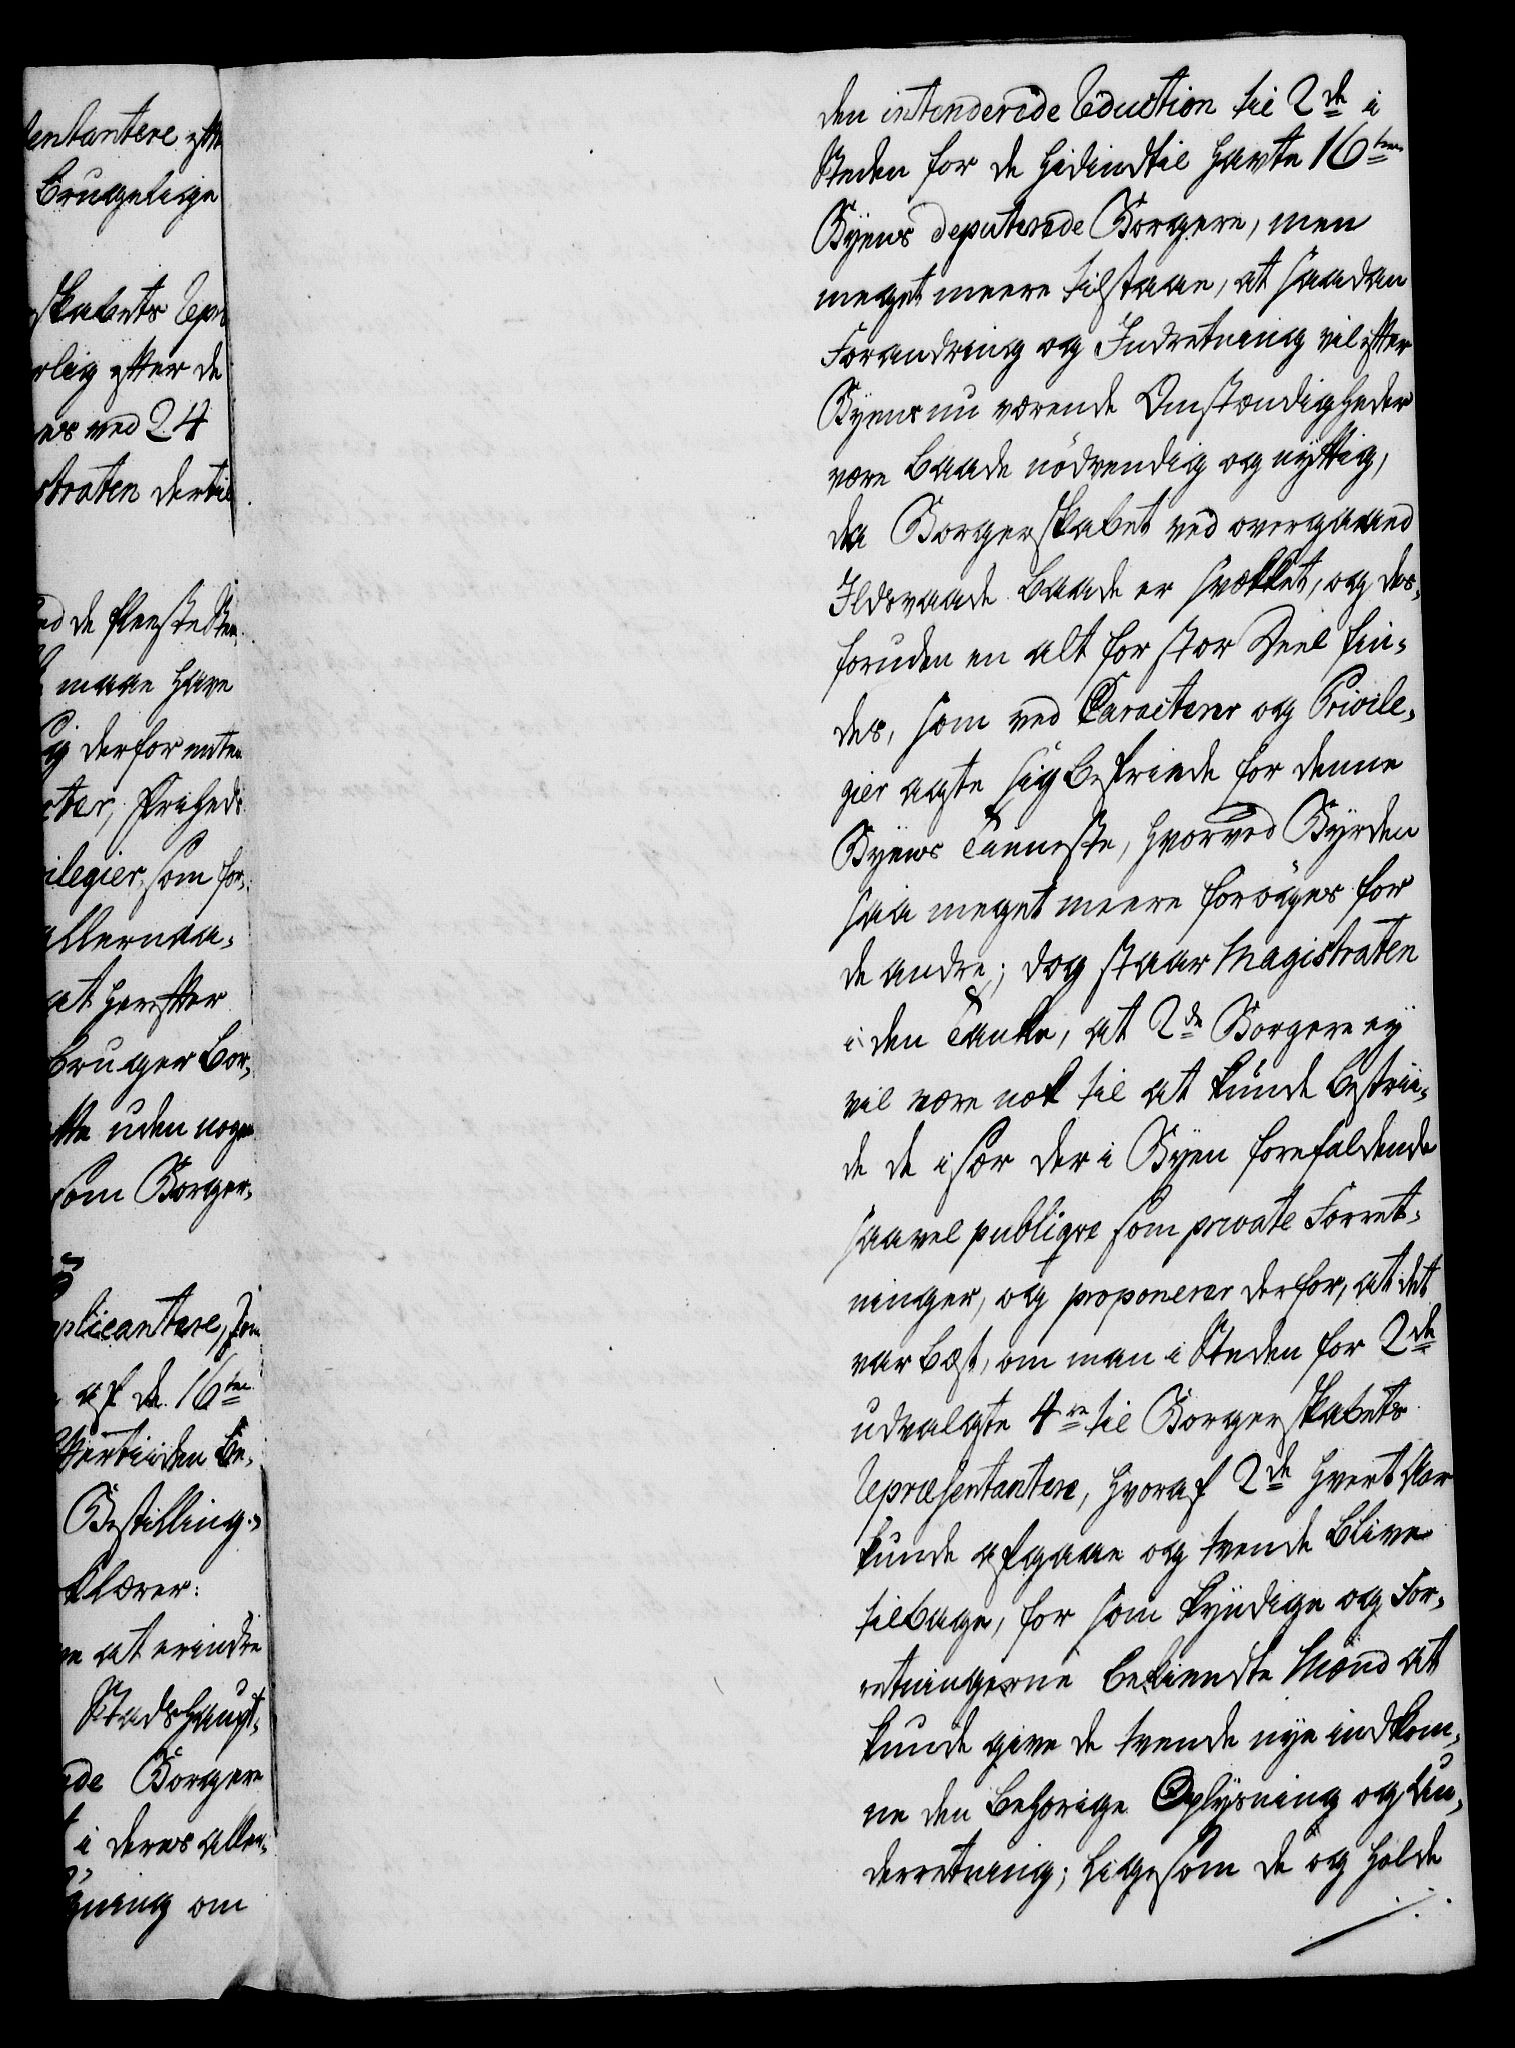 entantere efte
Brugelige
skabets Repr
rlig efter de
es ved 24
straten dertil
ed de fleeste Stæ
maae have
ig derfor enten
cter, friheds
ilegier, som for,
allernaa,
at herefter
bruger Bor,
tte uden nogen
som Borger,
plicantere, som
af de 16ten
Bestilling,
klærer:
e at erindre
Stadshaupt,
de Borgere
i deres aller,
gning om
den intenderede Reduction til 2de i
Steden for de hidindtil havte 16ten
Byens deputerede Borgere, men
meget meere tilstaae, at saadan
Forandring og Indretning vil efter
Byens nu værende Omstændigheder
være baade nödvendig og nyttig,
da Borgerskabet ved overgaaed
Ildsvaade baade er svækket, og des,
foruden en alt for stor Deel fin,
des, som ved Caracterer og Privile,
gier agte sig befriede for denne
Byens Tienneste, hvorved Byrden
saa meget meere foröges for
de andre; dog staar Magistraten
i den Tanke, at 2de Borgere ey
vil være nok til at kunde bestrii,
de de i sær der i Byen forefaldende
saavel publiqve som private Forret,
ninger, og proponerer derfor, at det
var best, om man i Steden for 2de
udvalgte 4re til Borgerskabets
Repræsentantere, hvoraf 2de hvert Aar
kunde afgaae og tvende blive
tilbage, for som kyndige og For,
retningerne bekiendte Mænd at
kunde give de tvende nye indkom,
ne den behörige Oplysning og Un,
derretning; ligesom de og holde